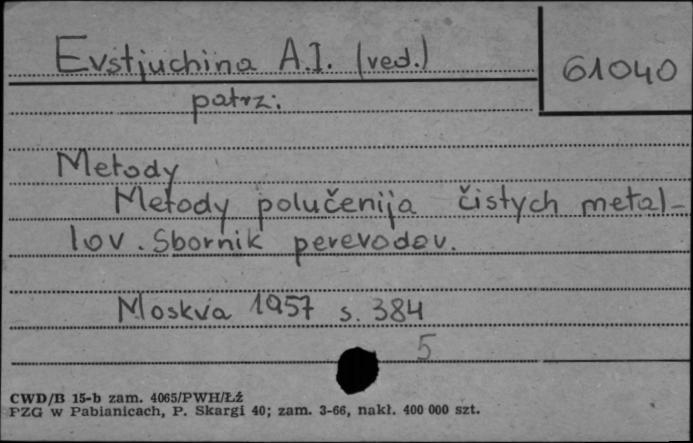 Evstjuchina A.I. (ved.)
61040
patrz:
Metody
Metody polučenija čistych metal-
lov. Sbornik perevodov.
Moskva 1957 s. 384
5
CWD/B 15-b zam. 4065/PWH/Łź
PZG w Pabianicach, P. Skargi 40; zam. 3-66, nakł. 400 000 szt.